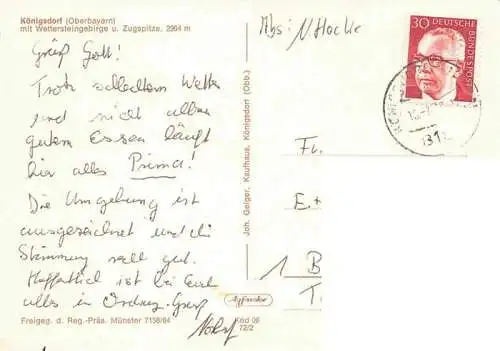 Königsdorf (Oberbayern)
mit Wettersteingebirge u. Zugspitze, 2964 m
Grüß Gott!
Trotz schlechtem Wetter
und nicht allzu
gutem Essen läuft
hier alles Prima!
Die Umgebung ist
ausgezeichnet und die
Stimmung sehr gut.
Hoffentlich ist bei Euch
alles in Ordnung. Gruß
Freigeg. d. Reg.-Präs. Münster 7158/64
Köd 06
72/2
Joh. Geiger, Kaufhaus, Königsdorf (Obb.)
Abs: N.
30 DEUTSCHE
BUNDESPOST
F
E
1 B
T